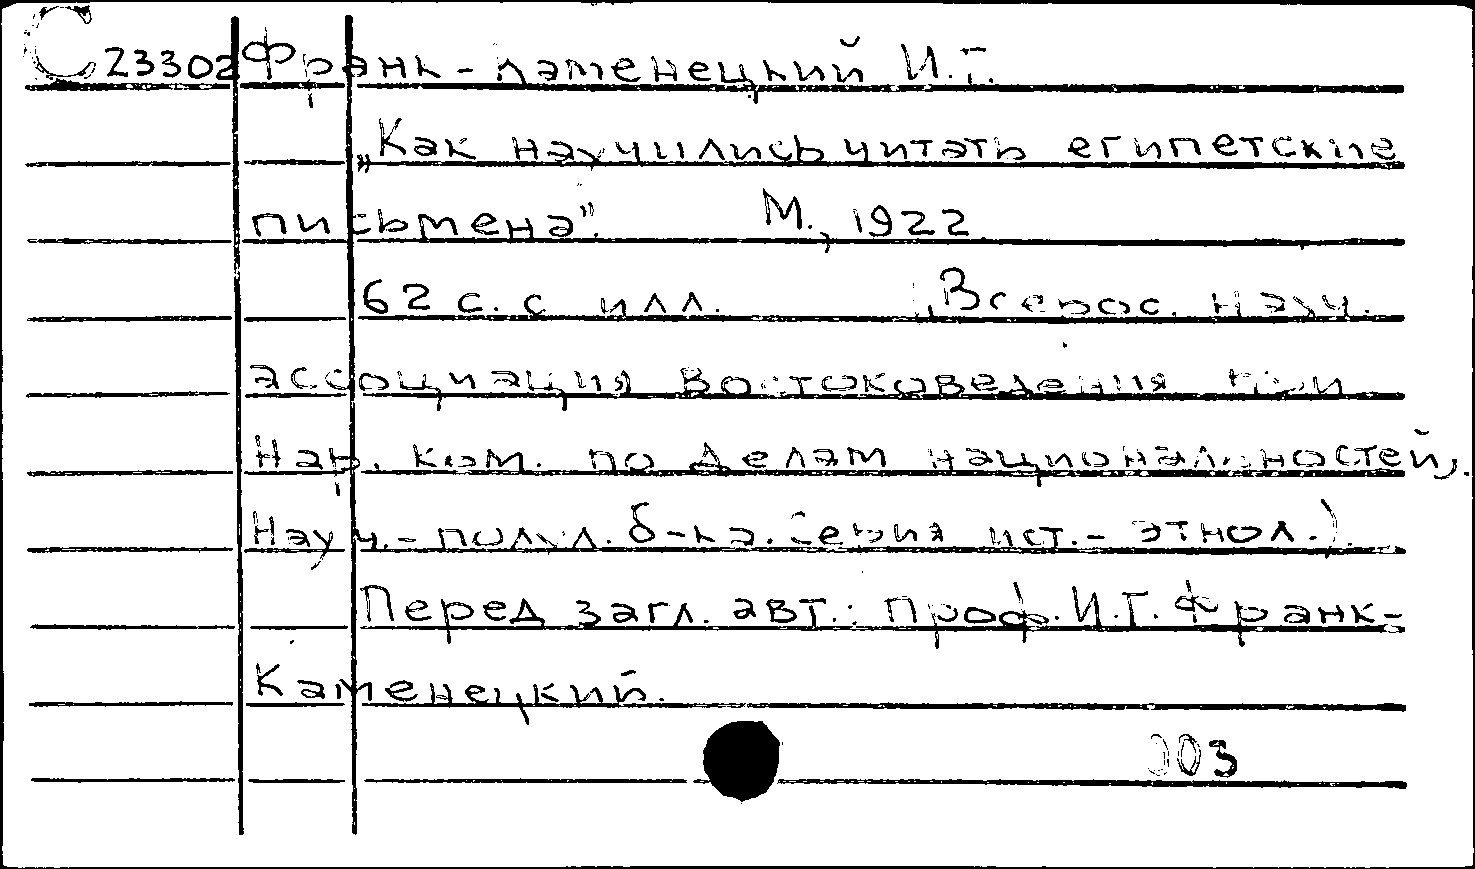 С 23302 Франк-Каменецкий И.Г.
„Как научились читать египетские
письмена". М., 1922
62 с. с илл. (Всерос. науч.
ассоциация востоковедения при
Нар. ком. по делам национальностей,.
Науч.-попул. б-ка. Серия ист.-этнол.).
Перед загл. авт.: Проф. И.Г. Франк-
Каменецкий.
003